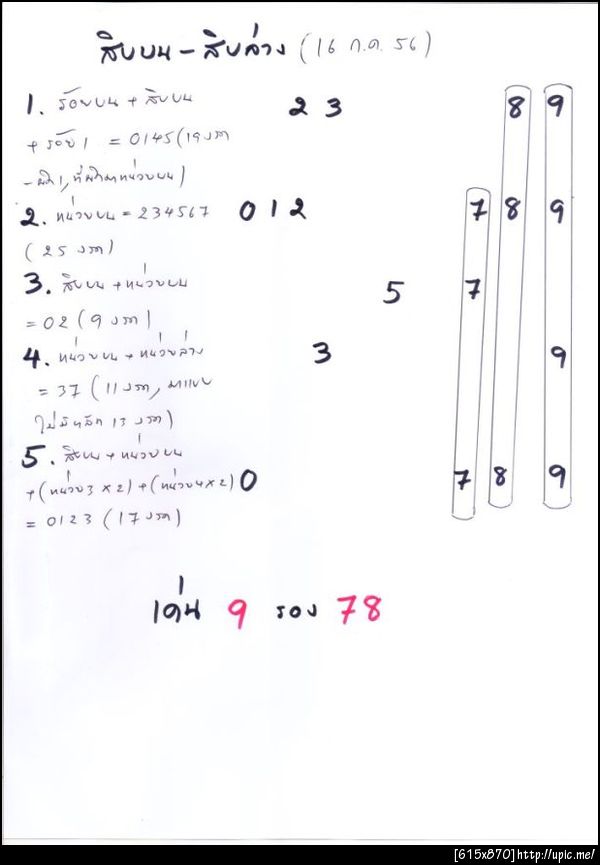 สิบบน - สิบล่าง (16 ก.ค. 56)
1. ร้อยบน + สิบบน 2 3 8 9
+ ร้อย 1 = 0145 (19 งวด
2. หน่วยบน = 234567 0 1 2 7 8 9
(25 งวด)
3. สิบบน + หน่วยบน 5 7
= 02 (9 งวด)
4. หน่วยบน + หน่วยล่าง 3 9
= 37 (11 งวด,
13 งวด)
5. สิบบน + หน่วยบน
+ (หน่วย 3 × 2) + (หน่วย 4 × 2) 0 7 8 9
= 0123 (17 งวด)
เด่น 9 รอง 78
[615x870]http://upic.me/